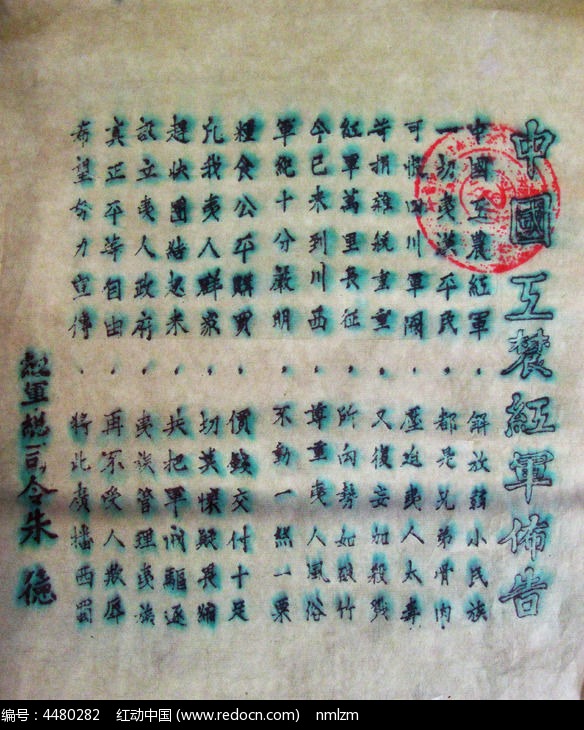 中國工農紅軍佈告
中國工農紅軍，解放弱小民族
一切夷漢平民，都是兄弟骨肉
可恨四川軍閥，壓迫夷人太毒
苛捐雜稅重重，又復妄加殺戮
紅軍萬里長征，所向勢如破竹
今已來到川西，尊重夷人風俗
軍紀十分嚴明，不動一絲一粟
糧食公平購買，價錢交付十足
凡我夷人群眾，切莫懷疑畏縮
趕快團結起來，共把軍閥驅逐
設立夷人政府，夷族管理夷族
真正平等自由，再不受人欺辱
希望努力宣傳，將此廣播西蜀
紅軍總司令朱德
编号：4480282 红动中国 (www.redocn.com) nmlzm